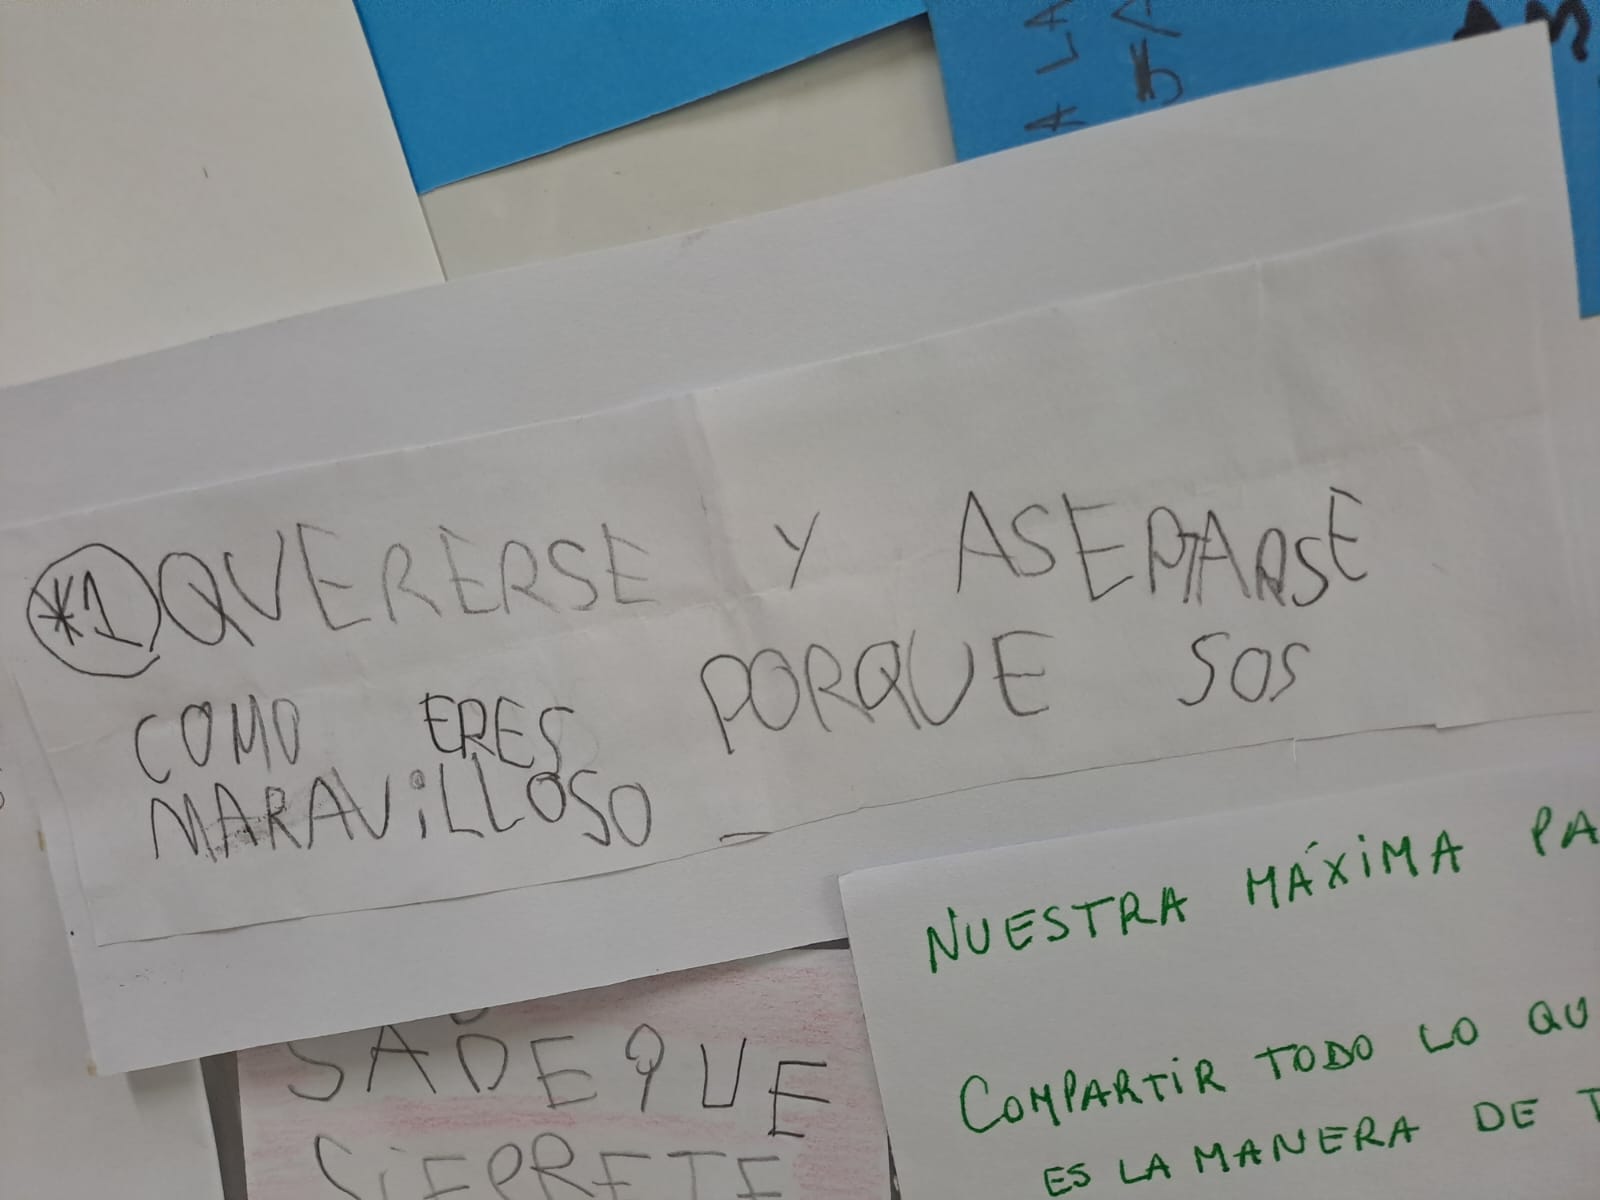 A LA
*1 QUERERSE Y ASEPTARSE
COMO ERES PORQUE SOS
MARAViLLOSO
NUESTRA MÁXiMA PA
COMPARTiR TODO LO QU
ES LA MANERA DE T
SADEQUE
SiEPRETE